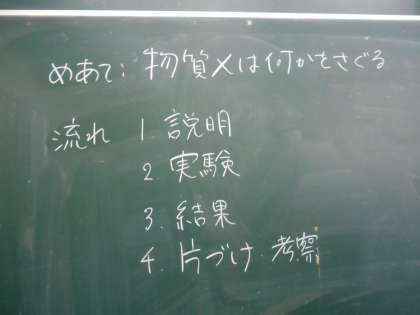 めあて: 物質Xは何かをさぐる
流れ 1. 説明
2. 実験
3. 結果
4. 片づけ・考察